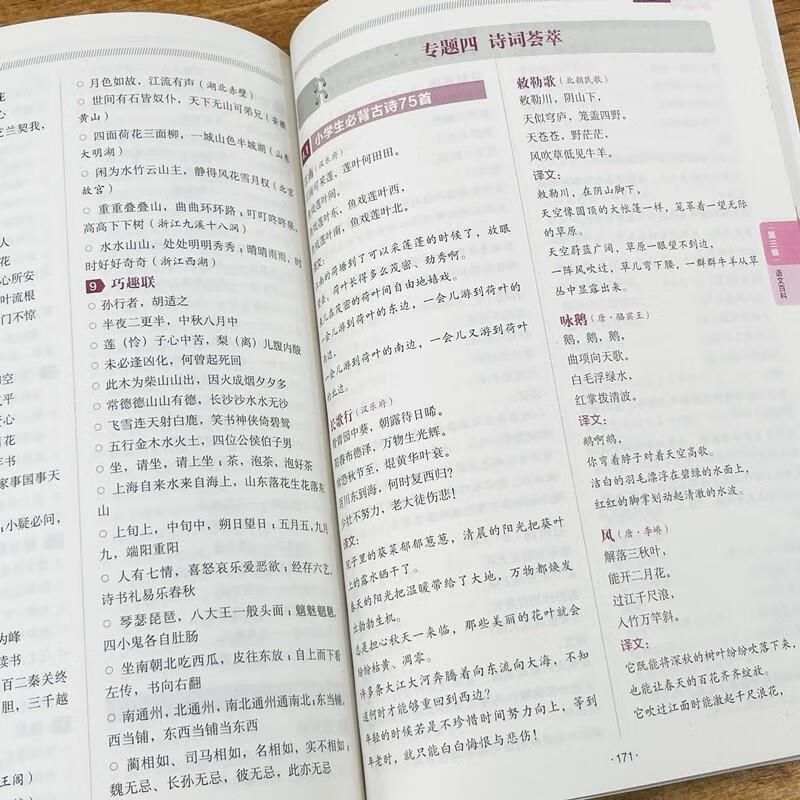 花
心
芝兰契我，
人
花
心所安
叶流根
门不惊
空
太平
乏心
百花
年书
家事国事天
小疑必问，
为峰
读书
百二秦关终
胆，三千越
王阁）
○ 月色如故，江流有声（湖北赤壁）
○ 世间有石皆奴仆，天下无山可弟兄（安徽
黄山）
○ 四面荷花三面柳，一城山色半城湖（山东
大明湖）
○ 闲为水竹云山主，静得风花雪月权（北京
故宫）
○ 重重叠叠山，曲曲环环路；叮叮咚咚泉，
高高下下树（浙江九溪十八涧）
○ 水水山山，处处明明秀秀；晴晴雨雨，时
时好好奇奇（浙江西湖）
9 巧趣联
○ 孙行者，胡适之
○ 半夜二更半，中秋八月中
○ 莲（怜）子心中苦，梨（离）儿腹内酸
○ 未必逢凶化，何曾起死回
○ 此木为柴山山出，因火成烟夕夕多
○ 常德德山山有德，长沙沙水水无沙
○ 飞雪连天射白鹿，笑书神侠倚碧鸳
○ 五行金木水火土，四位公侯伯子男
○ 坐，请坐，请上坐；茶，泡茶，泡好茶
○ 上海自来水来自海上，山东落花生花落东
山
○ 上旬上，中旬中，朔日望日；五月五，九月
九，端阳重阳
○ 人有七情，喜怒哀乐爱恶欲；经存六艺，
诗书礼易乐春秋
○ 琴瑟琵琶，八大王一般头面；魑魅魍魉，
四小鬼各自肚肠
○ 坐南朝北吃西瓜，皮往东放；自上而下看
左传，书向右翻
○ 南通州，北通州，南北通州通南北；东当铺，
西当铺，东西当铺当东西
○ 蔺相如、司马相如，名相如，实不相如；
魏无忌、长孙无忌，彼无忌，此亦无忌
专题四 诗词荟萃
小学生必背古诗75首
南（汉乐府）
南可采莲，莲叶何田田。
鱼戏莲叶间。
戏莲叶东，鱼戏莲叶西，
戏莲叶南，鱼戏莲叶北。
译文：
南的荷塘到了可以采莲莲的时候了，放眼
望去，荷叶长得多么茂密、劲秀啊。
儿在茂密的荷叶间自由地嬉戏。
一会儿游到荷叶的东边，一会儿又游到荷叶的
边，
一会儿游到荷叶的南边，一会儿又游到荷叶
的北边。
长歌行（汉乐府）
青青园中葵，朝露待日晞。
阳春布德泽，万物生光辉。
常恐秋节至，焜黄华叶衰。
百川东到海，何时复西归？
少壮不努力，老大徒伤悲！
译文：
院子里的葵菜郁郁葱葱，清晨的阳光把葵叶
上的露水晒干了。
春天的阳光把温暖带给了大地，万物都焕发
出勃勃生机。
总是担心秋天一来临，那些美丽的花叶就会
纷纷枯黄、凋零。
许多条大江大河奔腾着向东流向大海，不知
道何时才能够重回到西边？
年轻的时候若是不珍惜时间努力向上，等到
年老时，就只能白白悔恨与悲伤！
敕勒歌（北朝民歌）
敕勒川，阴山下，
天似穹庐，笼盖四野。
天苍苍，野茫茫，
风吹草低见牛羊。
译文：
敕勒川，在阴山脚下，
天空像圆顶的大帐篷一样，笼罩着一望无际
的草原。
天空蔚蓝广阔，草原一眼望不到边，
一阵风吹过，草儿弯下腰，一群群牛羊从草
丛中显露出来。
咏鹅（唐·骆宾王）
鹅，鹅，鹅，
曲项向天歌。
白毛浮绿水，
红掌拨清波。
译文：
鹅啊鹅，
你弯着脖子对着天空高歌。
洁白的羽毛漂浮在碧绿的水面上，
红红的脚掌划动起清澈的水波。
风（唐·李峤）
解落三秋叶，
能开二月花。
过江千尺浪，
入竹万竿斜。
译文：
它既能将深秋的树叶纷纷吹落下来，
也能让春天的百花齐齐绽放。
它吹过江面时能激起千尺浪花，
第三编
语文百科
·171·